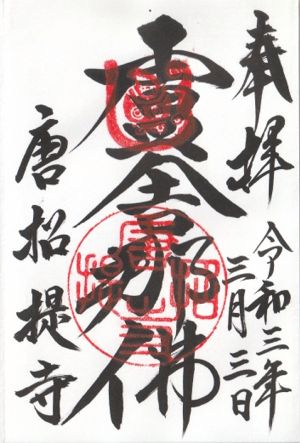 奉拝
令和三年
三月三日
盧舎那佛
唐招提寺